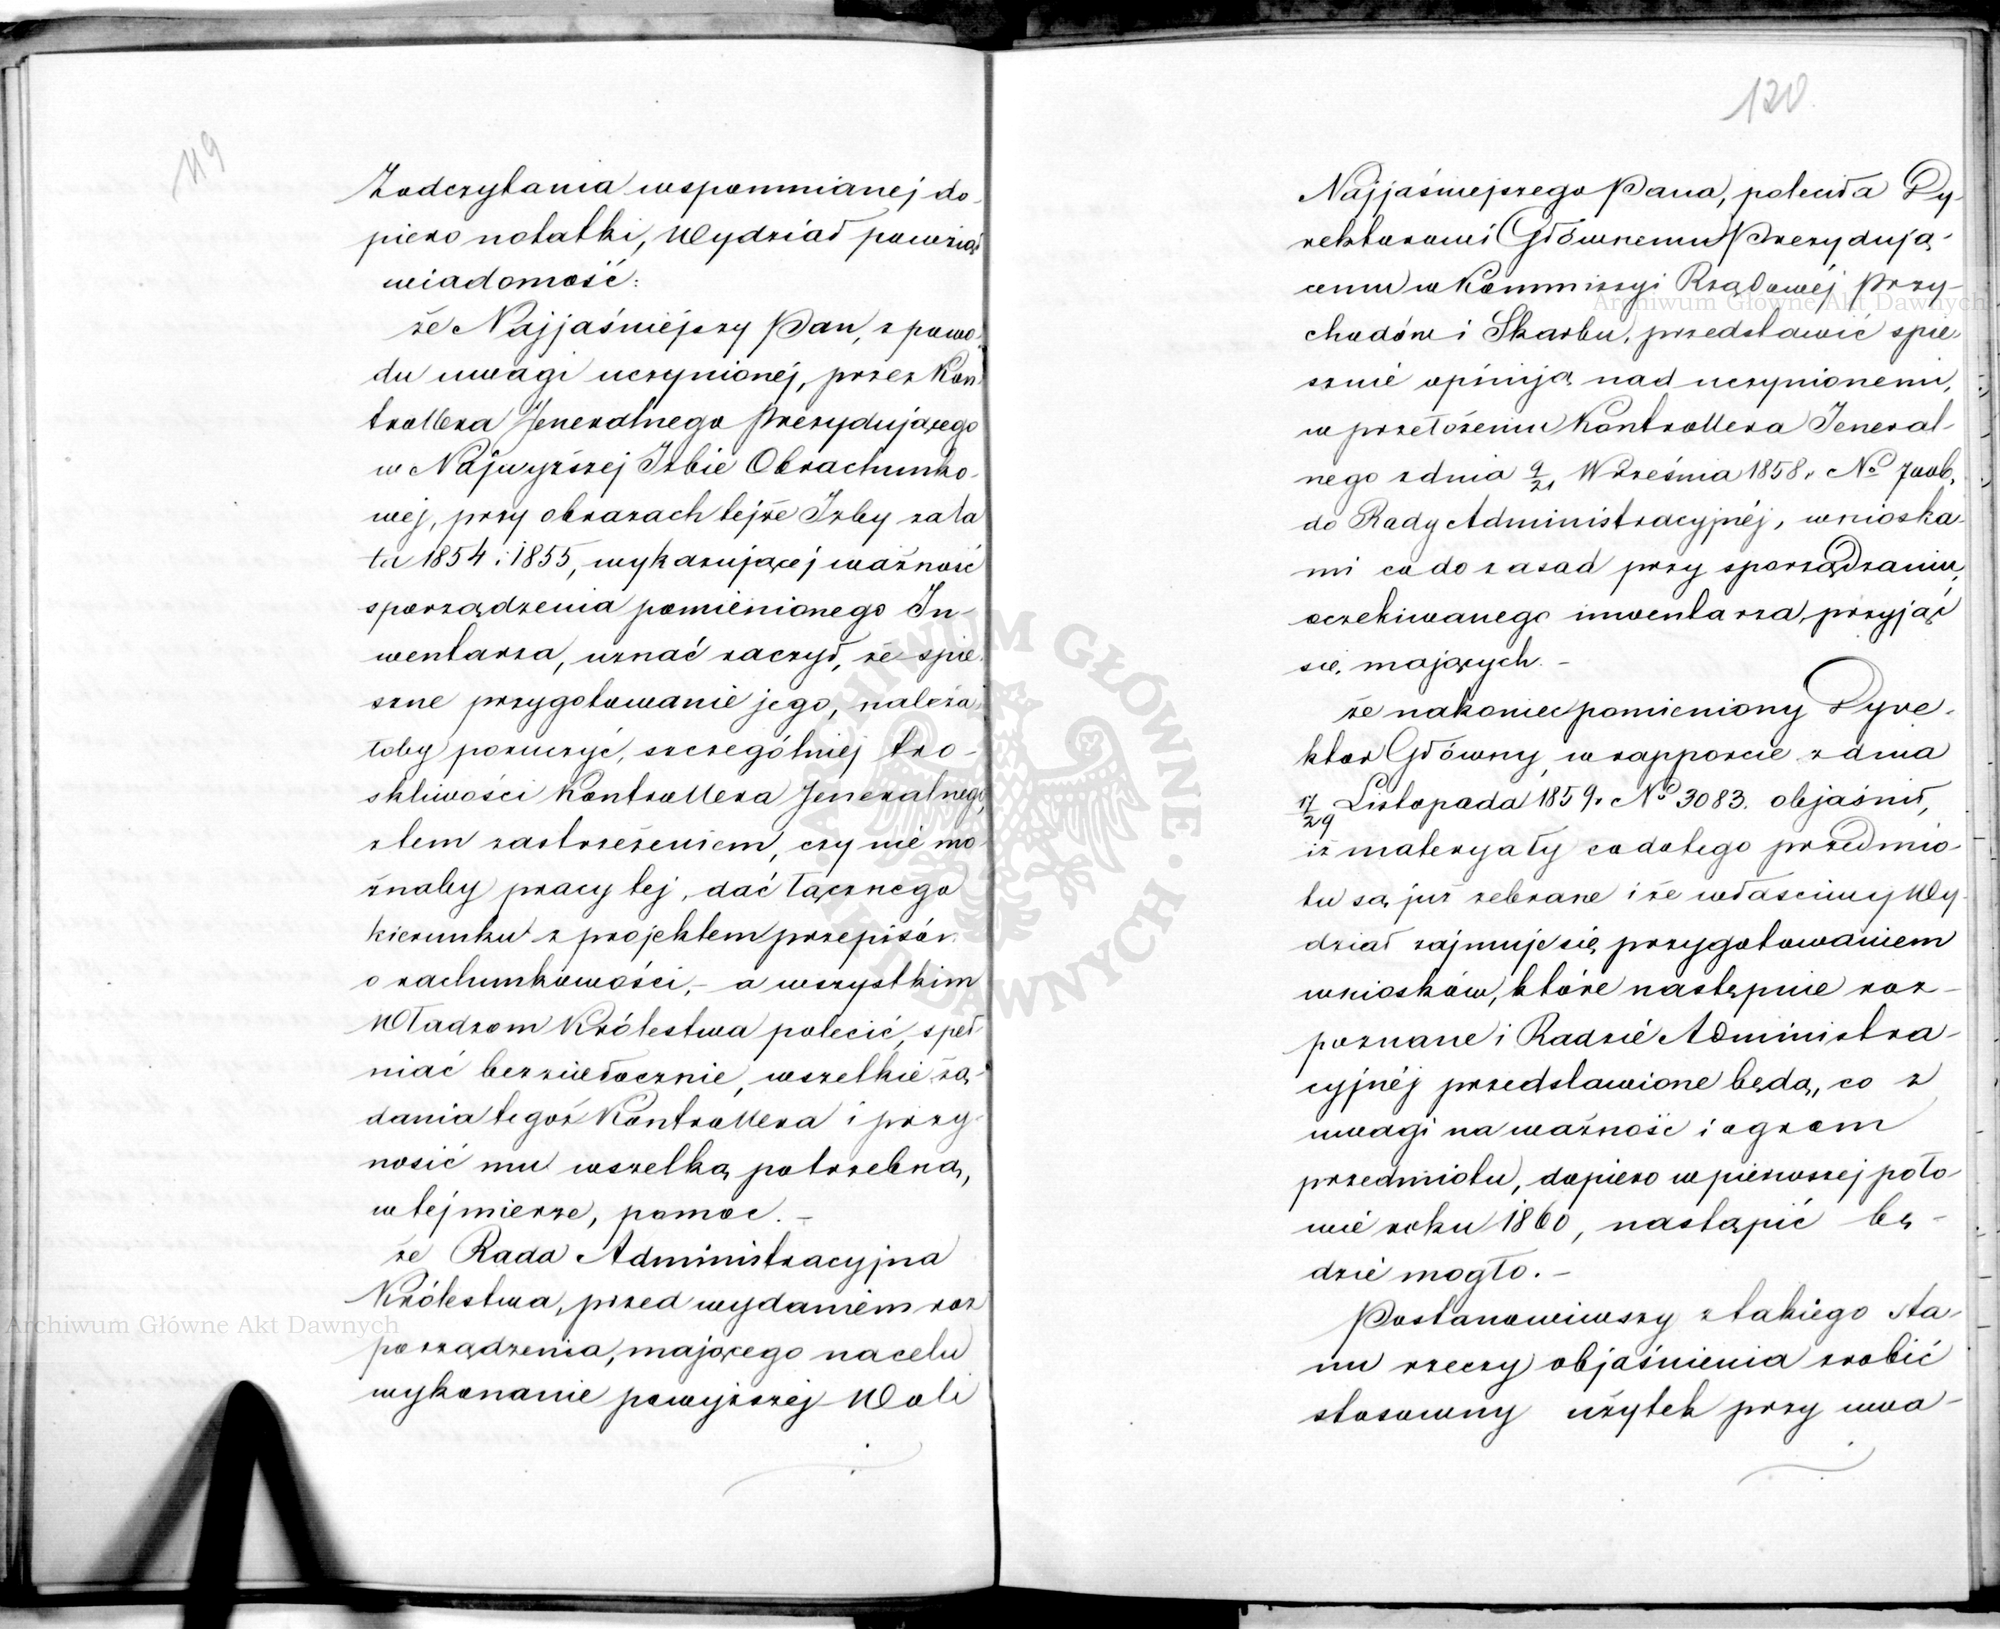 119
Z odczytania wspomnianej do-
piero notatki, Wydział powziął
wiadomość:
że Najjaśniejszy Pan, z powo-
du uwagi uczynionéj, przez Kon-
trollera Jeneralnego Prezydującego
w Najwyższej Izbie Obrachunko-
wej, przy obrazach tejże Izby za la
ta 1854 i 1855, wykazującej ważność
sporządzenia pomienionego In-
wentarza, uznać raczył, że spie-
szne przygotowanie jego, należa-
łoby poruczyć, szczególniej tro-
skliwości Kontrollera Jeneralnego,
z tem zastrzeżeniem, czy nie mo-
żnaby pracy tej, dać łącznego
kierunku z projektem przepisów
o rachunkowości, - a wszystkim
Władzom Królestwa polecić, speł-
niać bezzwłocznie, wszelkie żą-
dania tegoż Kontrollera i przy-
nosić mu wszelką potrzebną,
w tej mierze, pomoc. -
że Rada Administracyjna
Królestwa, przed wydaniem roz
porządzenia, mającego na celu
wykonanie powyższej Woli
120
Najjaśniejszego Pana, poleciła Dy-
rektorowi Głównemu Prezydują-
cemu w Kommissyi Rządowéj Przy-
chodów i Skarbu, przedstawić spie-
sznie opinią nad uczynionemi,
w przełożeniu Kontrollera Jeneral-
nego z dnia 9/21 Września 1858 r. No
do Rady Administracyjnéj, wnioska-
mi co do zasad przy sporządzaniu,
oczekiwanego inwentarza, przyjąć
się mających. -
że nakoniec pomieniony Dyre-
ktor Główny, w rapporcie z dnia
17/29 Listopada 1859 r. No 3083. objaśnił,
iż materyały co do tego przedmio-
tu są już zebrane i że właściwy Wy-
dział zajmuje się przygotowaniem
wniosków, które następnie roz-
poznane i Radzie Administra-
cyjnéj przedstawione będą, co z
uwagi na ważność i ogrom
przedmiotu, dopiero w pierwszej poło-
wie roku 1860, nastąpić bę-
dzie mogło. -
Postanowiwszy z takiego sta-
nu rzeczy objaśnienia zrobić
stosowny użytek przy uwa-
Archiwum Główne Akt Dawnych
Archiwum Główne Akt Dawnych
ARCHIWUM GŁÓWNE · AKT DAWNYCH ·